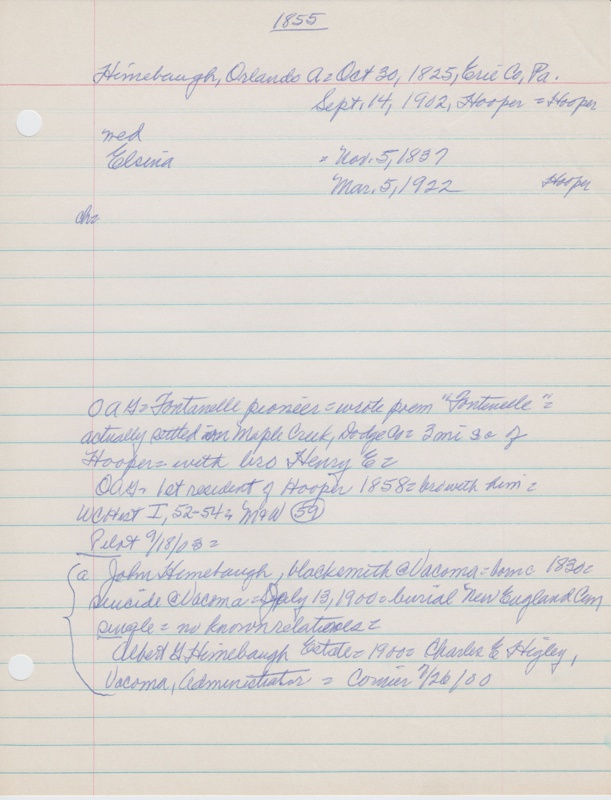 1855
Himebaugh, Orlando A = Oct 30, 1825, Erie Co, Pa.
Sept. 14, 1902, Hooper = Hooper
med
Elsina = Nov. 5, 1837
Mar. 5, 1922 Hooper
ch=
OAH = Fontanelle pioneer = wrote poem "Fontenelle" =
actually settled on Maple Creek, Dodge Co = 3 mi so of
Hooper = with bro Henry E =
OAH = 1st resident of Hooper 1858 = bro with him =
WCHist I, 52-54 = M&W 59
Pilot 9/18/03 =
a John Himebaugh, blacksmith @ Vacoma = born c 1830 =
suicide @ Vacoma = July 13, 1900 = burial "New England Cem
single = no known relatives =
Albert G Himebaugh Estate = 1900 = Charles E Higley,
Vacoma, Administrator = Courier 7/26/00